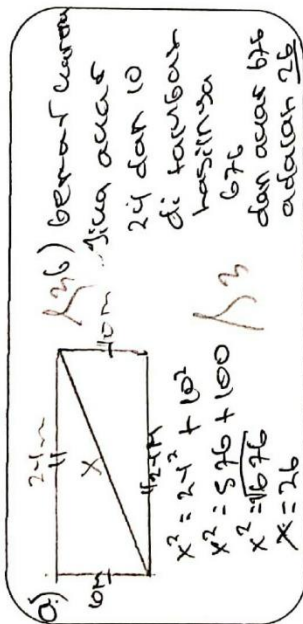 a)
24 m
10 m
X
10 m
24 m
x² = 24² + 10²
x² = 576 + 100
x² = √676
x = 26
b) benar karena
Jika akar
24 dan 10
di tambah
hasilnya
676
dan akar 676
adalah 26